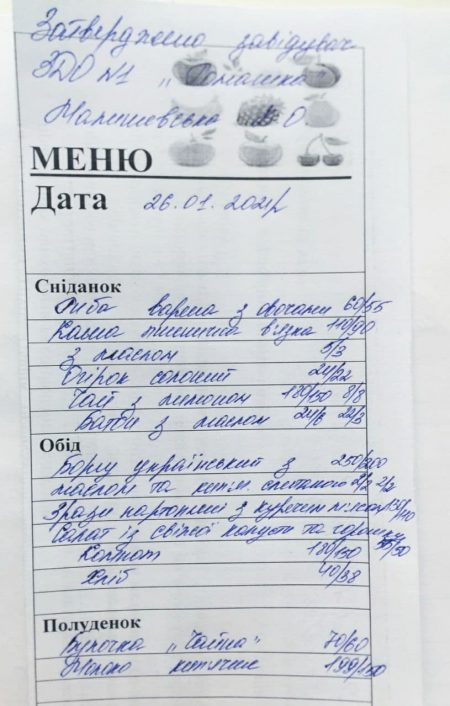 Затверджено завідувач
ЗДО №1 „Ромашка"
Малишевська О
МЕНЮ
Дата 26.01.2021р
Сніданок
Риба варена з овочами 60/55
Каша пшенична в'язка 110/90
з маслом 5/3
Огірок солоний 24/22
Чай з лимоном 180/150 8/8
Батон з маслом
Обід
Борщ український з 250/200
маслом та кип'яч сметаною 2/2 2/2
Зрази картопляні з курячим м'ясом
Салат із свіжої капусти та горошку
Компот 180/150
Хліб 40/38
Полуденок
Булочка „Чайна" 70/60
Молоко кип'ячене